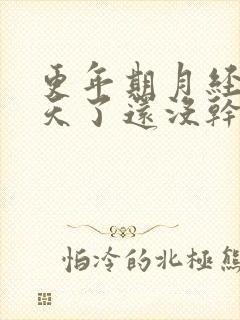 更年期月經
天了還沒幹
怕冷的北極熊